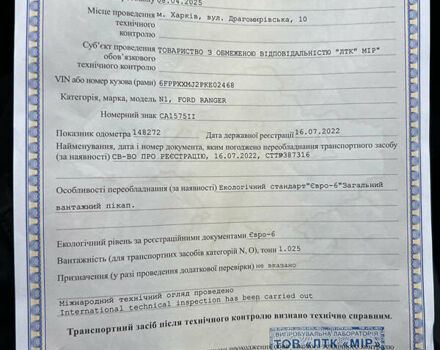 08.04.2025
Місце проведення м. Харків, вул. Драгомирівська, 10
технічного
контролю
Суб'єкт проведення ТОВАРИСТВО З ОБМЕЖЕНОЮ ВІДПОВІДАЛЬНІСТЮ "ЛТК" МІР"
обов'язкового
технічного контролю
VIN або номер кузова (рами) 6FPPXXMJ2PKE02468
Категорія, марка, модель N1, FORD RANGER
Номерний знак CA1575II
Показник одометра 148272 Дата державної реєстрації 16.07.2022
Найменування, дата і номер документа, яким погоджено переобладнання транспортного засобу
(за наявності) СВ-ВО ПРО РЕЄСТРАЦІЮ, 16.07.2022, СТТ№387316
Особливості переобладнання (за наявності) Екологічний стандарт"Євро-6"Загальний
вантажний пікап.
Екологічний рівень за реєстраційними документами Євро-6
Вантажність (для транспортних засобів категорій N, O), тонн 1.025
Призначення (у разі проведення додаткової перевірки) не вказано
Міжнародний технічний огляд проведено
International technical inspection has been carried out
Транспортний засіб після технічного контролю визнано технічно справним.
ВИПРОБУВАЛЬНА ЛАБОРАТОРІЯ
ТОВ "ЛТК "МІР"